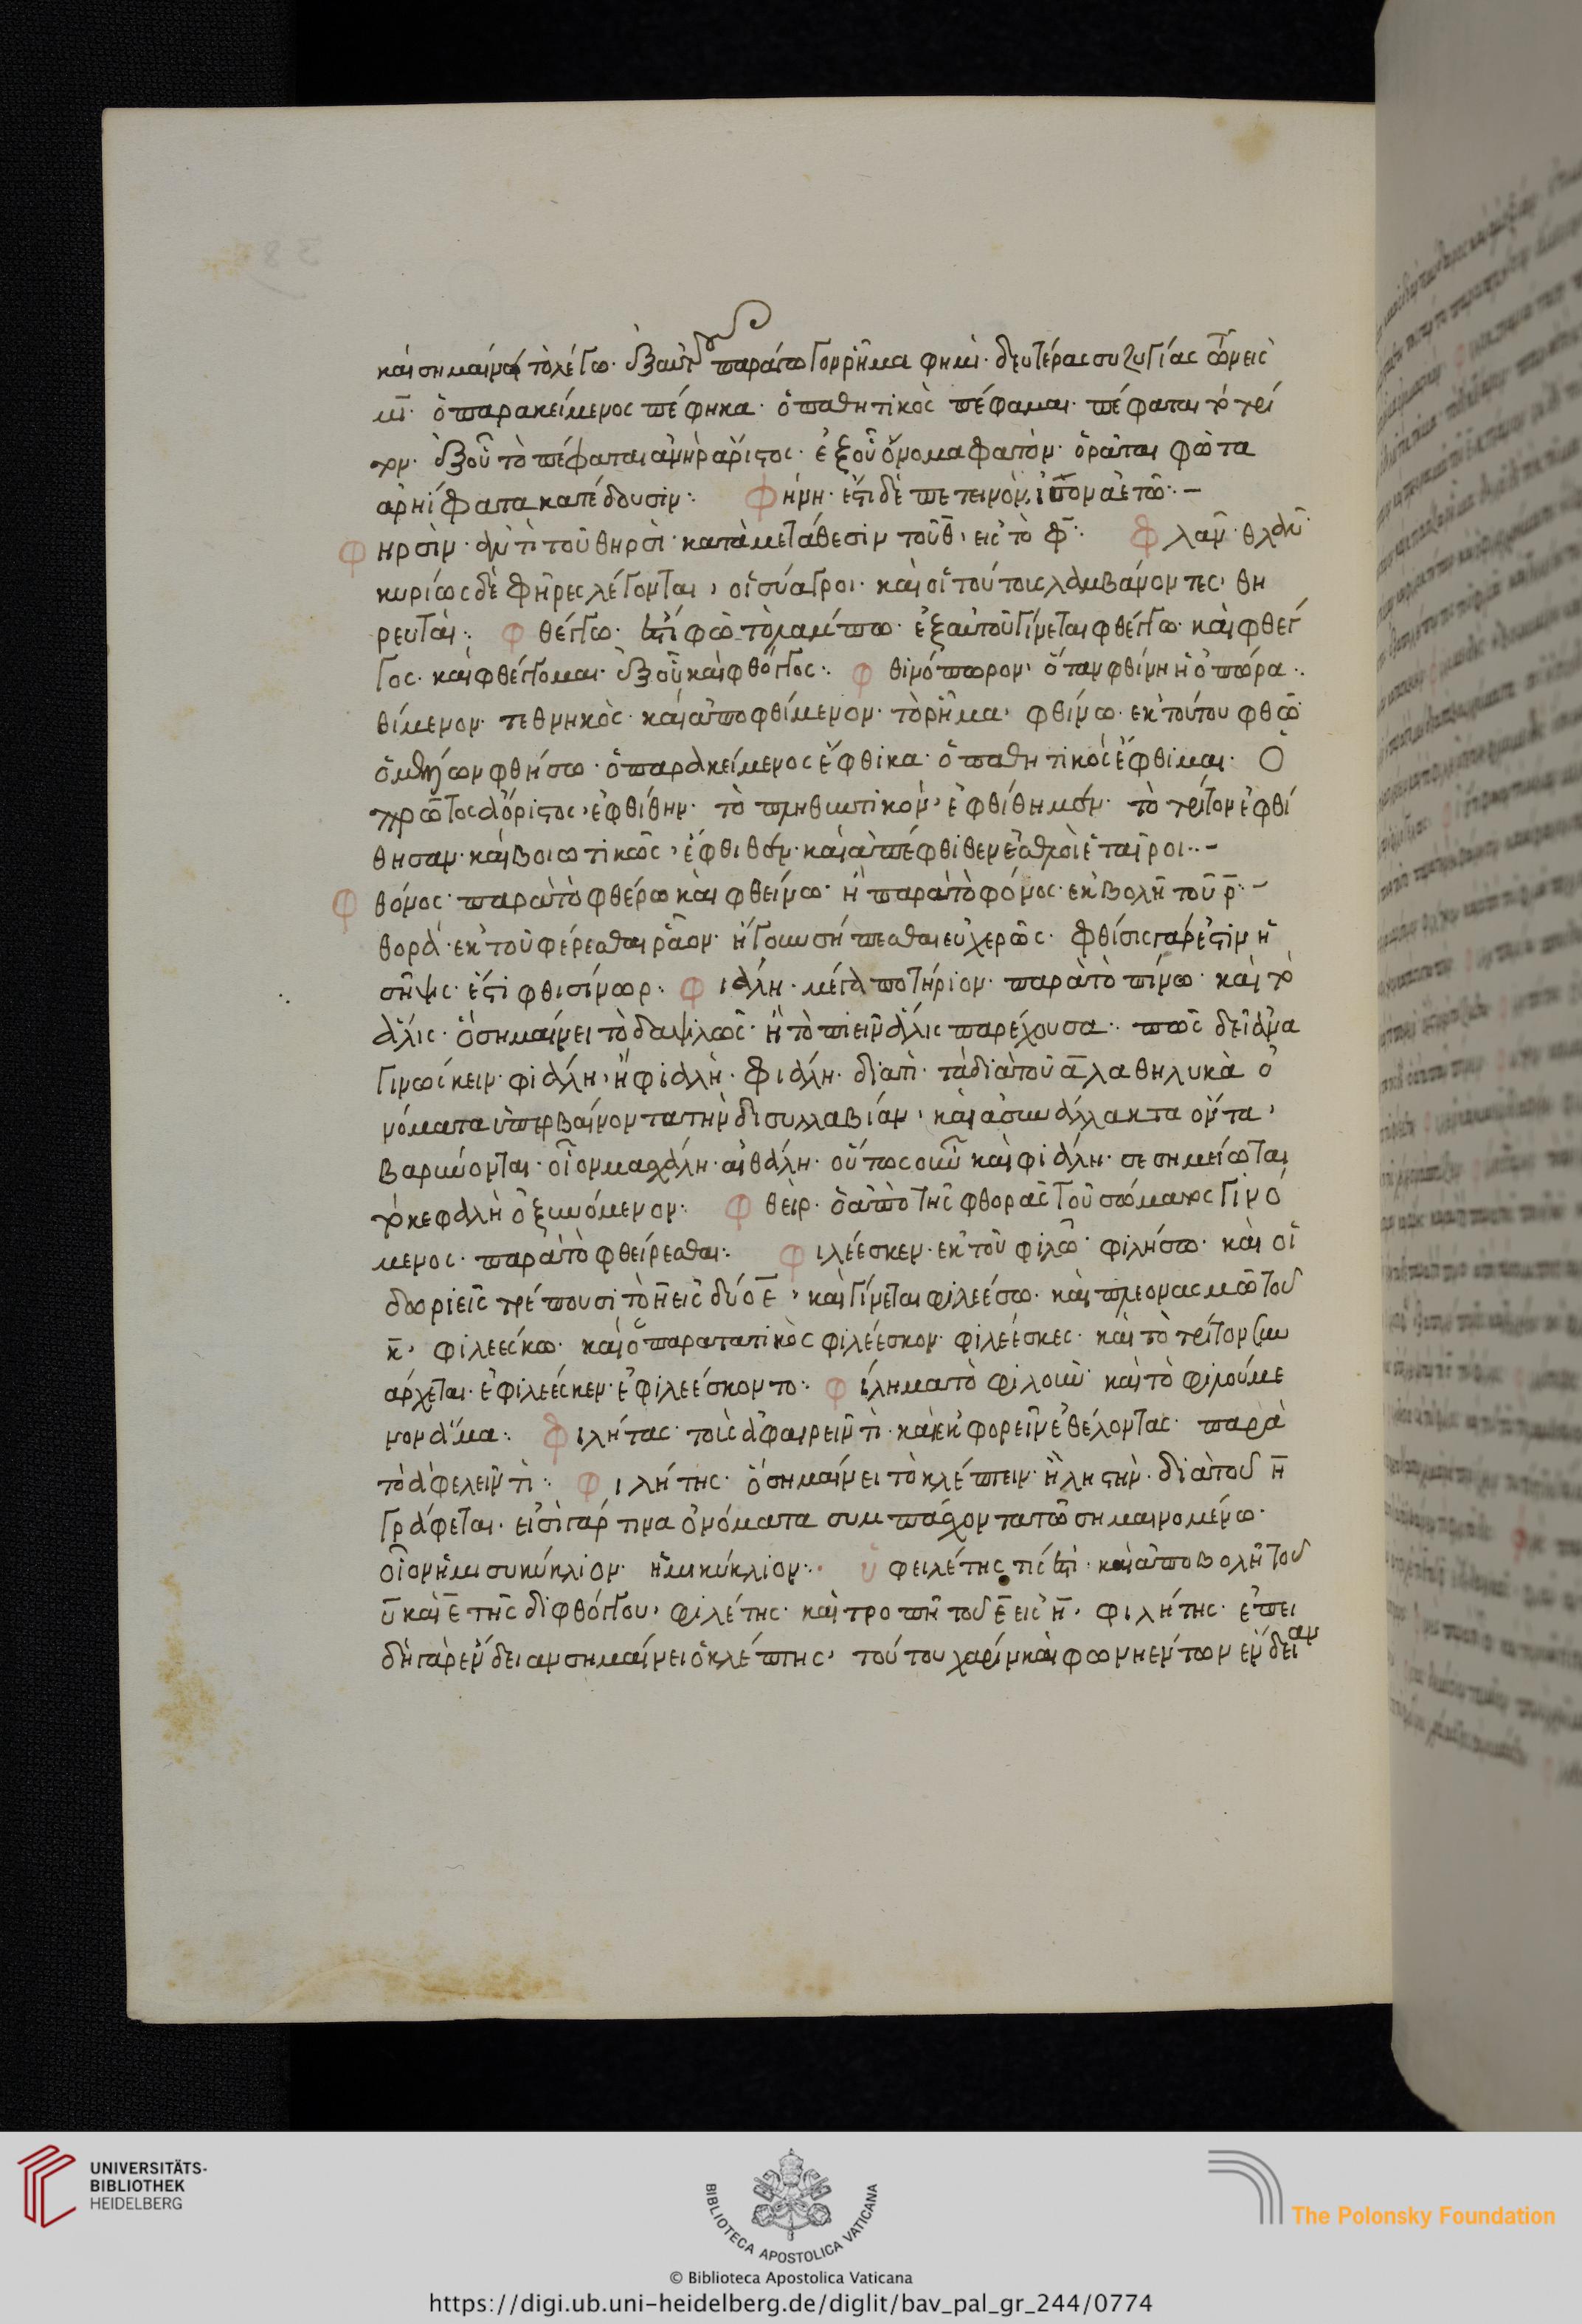 καὶ σημαίνει τὸ λέγω· ἐξ αὐτοῦ παράγωγον ῥῆμα φημὶ· δευτέρας συζυγίας τῶν εἰς
μι· ὁ παρακείμενος πέφηκα· ὁ παθητικὸς πέφαμαι· πέφαται τὸ τρί
τον· ἐξ οὗ τὸ πέφαται ἀνὴρ ἄριστος· ἐξ οὗ ὄνομα φατὸν· ὁρᾶται φῶτα
ἀρηΐφατα κατέδουσιν:· Φήνη· ἔστι δὲ πετεινὸν, ἀετῶ:-
Φηρσὶν· ἀντὶ τοῦ θηρσὶ· κατὰ μετάθεσιν τοῦ θ, εἰς τὸ φ:· Φλᾶν· θλᾶν·
κυρίως δὲ φῆρες λέγονται, οἱ σύαγροι· καὶ οἱ τούτους λαμβάνοντες· θη
ρευταὶ:· Φθέγγω· ἐστί φῶ τὸ λάμπω· ἐξ αὐτοῦ γίνεται φθέγγω· καὶ φθέγ
γος· καὶ φθέγγομαι· ἐξ οὗ καὶ φθόγγος:· Φθινόπωρον· ὅταν φθίνη ἡ ὀπώρα:·
θίμενον· τεθνηκὸς· καὶ ἀποφθίμενον· τὸ ῥῆμα· φθίνω· ἐκ τούτου φθῶ·
ὁ μέλλων φθήσω· ὁ παρακείμενος ἔφθικα· ὁ παθητικὸς ἔφθιμαι· Ὁ
πρῶτος ἀόριστος· ἐφθίθην· τὸ πληθυντικὸν· ἐφθίθημεν· τὸ τρίτον ἐφθί
θησαν· καὶ βοιωτικῶς· ἔφθιθεν· καὶ ἀπέφθιθεν ἐσθλοὶ ἑταῖροι:-
Φθόνος· παρὰ τὸ φθέρω καὶ φθείνω· ἢ παρὰ τὸ φόνος· ἐκβολῆ τοῦ ρ:-
θορά· ἐκ τοῦ φέρεσθαι ῥᾶον· ἤγουν σήπεσθαι εὐχερῶς· φθίσις γάρ ἐστιν ἡ
σῆψις· ἔστι φθισήνωρ:· Φιάλη· μέγα ποτήριον· παρὰ τὸ πίνω· καὶ τὸ
ἅλις· ὃ σημαίνει τὸ δαψιλῶς· ἢ τὸ πιεῖν ἅλις παρέχουσα:· πῶς δεῖ ἀνα
γινώσκειν· φιάλη· ἢ φιαλὴ· φιάλη· διατὶ· τὰ διὰ τοῦ αλα θηλυκὰ ὀ
νόματα ὑπερβαίνοντα τὴν δισυλλαβίαν, καὶ ἀσυνάλλακτα ὄντα,
βαρύνονται· οἷον μασχάλη· αἰθάλη· οὕτως οὖν καὶ φιάλη· σεσημείωται
τὸ κεφαλὴ ὀξυνόμενον:· Φθεὶρ· ὁ ἀπὸ τῆς φθορᾶς τοῦ σώματος γινό
μενος· παρὰ τὸ φθείρεσθαι:· Φιλέεσκεν· ἐκ τοῦ φιλῶ· φιλήσω· καὶ οἱ
δωριεῖς τρέπουσι τὸ η εἰς δύο ε, καὶ γίνεται φιλεέσω· καὶ πλεονασμῶ τοῦ
κ, φιλεέσκω· καὶ ὁ παρατατικὸς φιλέεσκον· φιλέεσκες· καὶ τὸ τρίτον
ἄρχεται· ἐφιλέεσκεν· ἐφιλεέσκοντο:· Φίλημα τὸ φιλοῦν· καὶ τὸ φιλούμε
νον ἅμα:· Φιλήτας· τοὺς ἀφαιρεῖν τὶ· καὶ ἐκφορεῖν ἐθέλοντας· παρὰ
τὸ ἀφελεῖν τὶ:· Φιλήτης· ὃ σημαίνει τὸ κλέπτειν· ἢ ληστὴν· διὰ τοῦ η
γράφεται· εἰσὶ γάρ τινα ὀνόματα συμπάσχοντα τῶ σημαινομένω·
οἷον ἡμισυκύκλιον· ἡμικύκλιον:· ὑφειλέτης τίς ἐστι· καὶ ἀποβολῆ τοῦ
υ καὶ ε τῆς διφθόγγου· φιλέτης· καὶ τροπῆ τοῦ ε εἰς η, φιλήτης· ἐπει
δὴ γὰρ ἔνδειαν σημαίνει ὁ κλέπτης, τούτου χάριν καὶ φωνηέντων ἔνδειαν
UNIVERSITÄTS-
BIBLIOTHEK
HEIDELBERG
BIBLIOTECA APOSTOLICA VATICANA
The Polonsky Foundation
© Biblioteca Apostolica Vaticana
https://digi.ub.uni-heidelberg.de/diglit/bav_pal_gr_244/0774